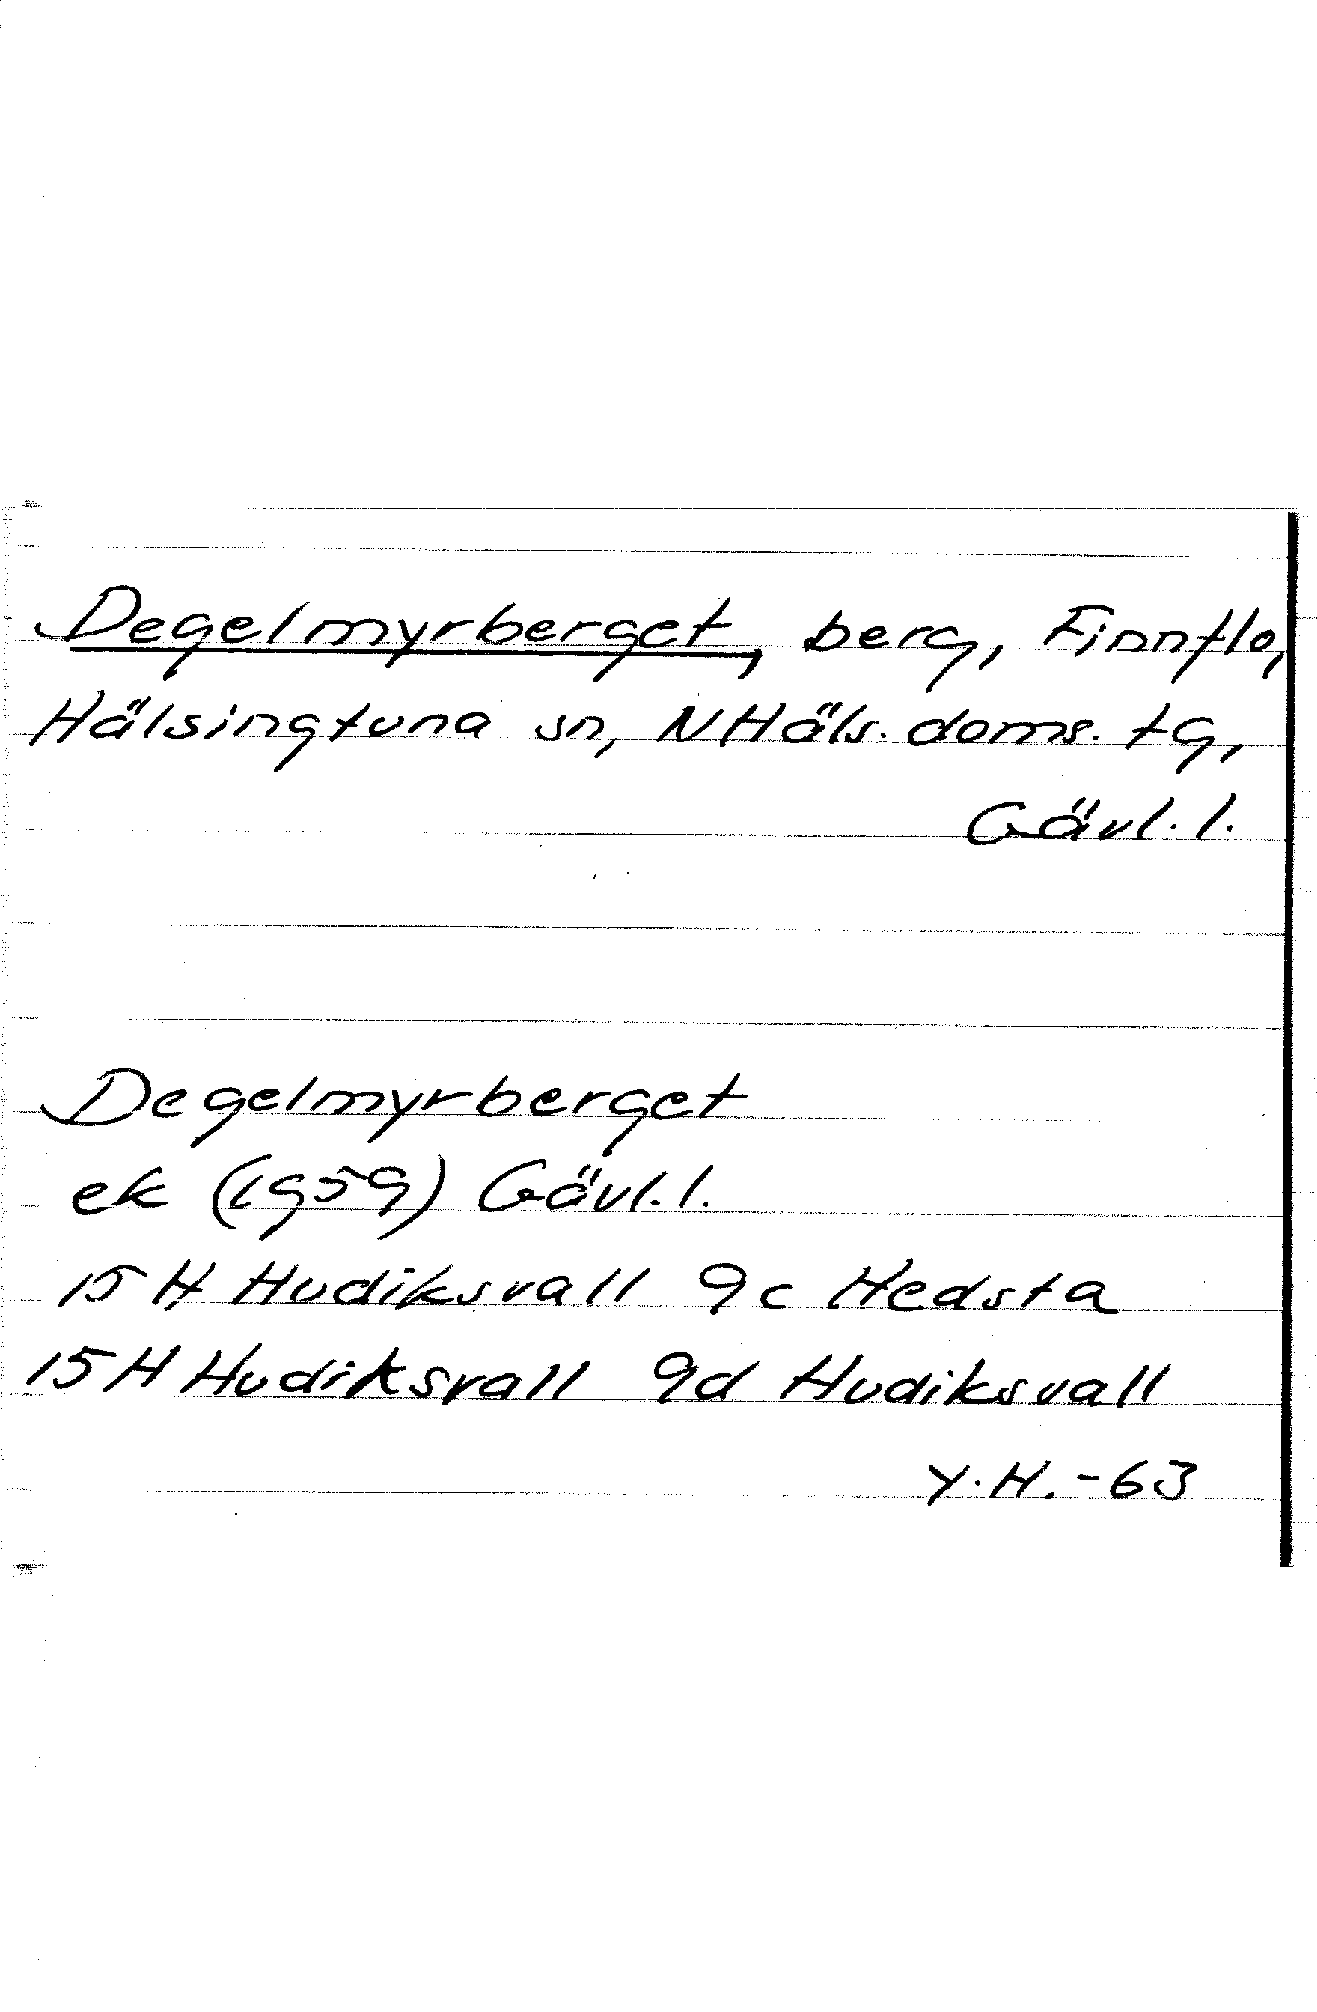 Degelmyrberget, berg, Finnflo,
Hälsingtuna sn, NHäls. doms. tg,
Gävl. l.
Degelmyrberget
ek (1959) Gävl. l.
15 H Hudiksvall 9c Hedsta
15 H Hudiksvall 9d Hudiksvall
Y. H. -63